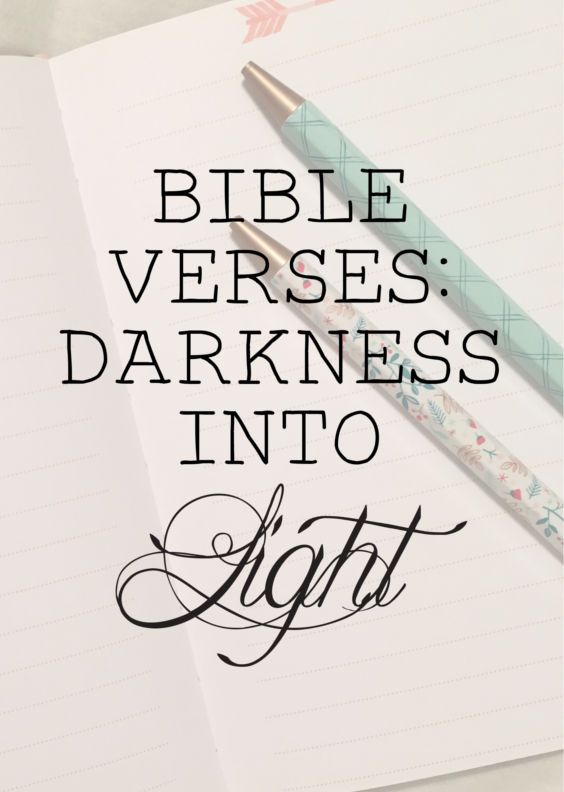 BIBLE
VERSES:
DARKNESS
INTO
Light